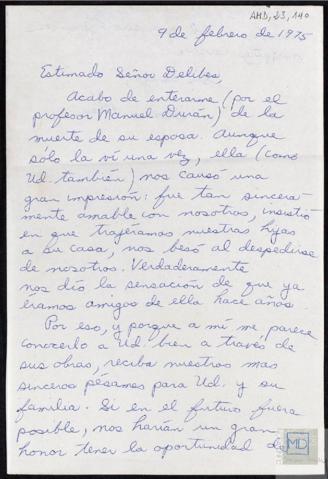 AMD, 23, 140
9 de febrero de 1975
Estimado Señor Delibes,
Acabo de enterarme (por el
profesor Manuel Durán) de la
muerte de su esposa. Aunque
sólo la ví una vez, ella (como
Ud. también) nos causó una
gran impresión: fue tan sincera-
mente amable con nosotros, insistió
en que trajéramos nuestras hijas
a su casa, nos besó al despedirse
de nosotros. Verdaderamente
nos dio la sensación de que ya
éramos amigos de ella hace años.
Por eso, y porque a mí me parece
conocerlo a Ud. bien a través de
sus obras, reciba nuestros mas
sinceros pésames para Ud. y su
familia. Si en el futuro fuera
posible, nos harían un gran
honor tener la oportunidad de
MD